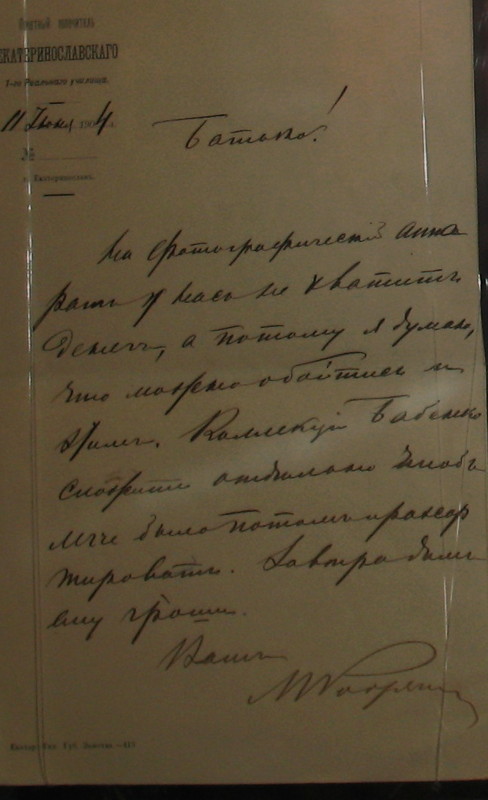 Почетный попечитель
ЕКАТЕРИНОСЛАВСКАГО
1-го Реальнаго училища.
11 Iюня 1904 г.
№
г. Екатеринославъ.
Батько!
На фотографическiй аппа
ратъ у насъ не хватитъ
денегъ, а потому я думаю,
что можно обойтись и
безъ него. Коллекцiй Бабенко
сложите отдѣльно чтобъ
легче было потомъ транспор
тировать. Завтра дамъ
ему грошi.
Вашъ